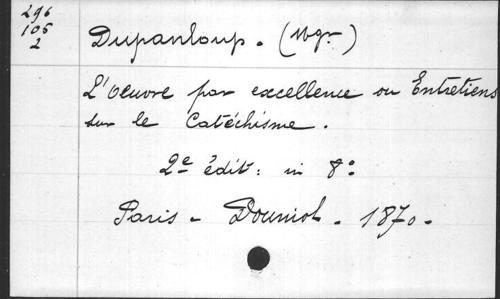 296
105
2
Dupanloup. (Mgr)
L'Oeuvre par excellence ou Entretiens
sur le Catéchisme.
2e édit: in 8o
Paris - Douniol. 1870.